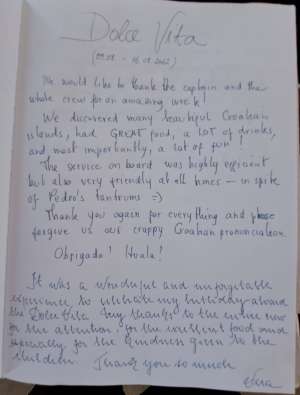 Dolce Vita
We would like to thank the captain and the
whole crew for an amazing week!
We discovered many beautiful Croatian
islands, had GREAT food, a LOT of drinks,
and most importantly, a lot of fun!
The service on board was highly efficient
but also very friendly at all times - in spite
of Pedro's tantrums =)
Thank you again for everything and please
forgive us our crappy Croatian pronunciation
Obrigado! Hvala!
It was a wonderful and unforgetable
experience to celebrate my birthday aboard
the Dolce Vita. My thanks to the entire crew
for the attention, for the excellent food and
specially for the kindness given to the
children. Thank you so much